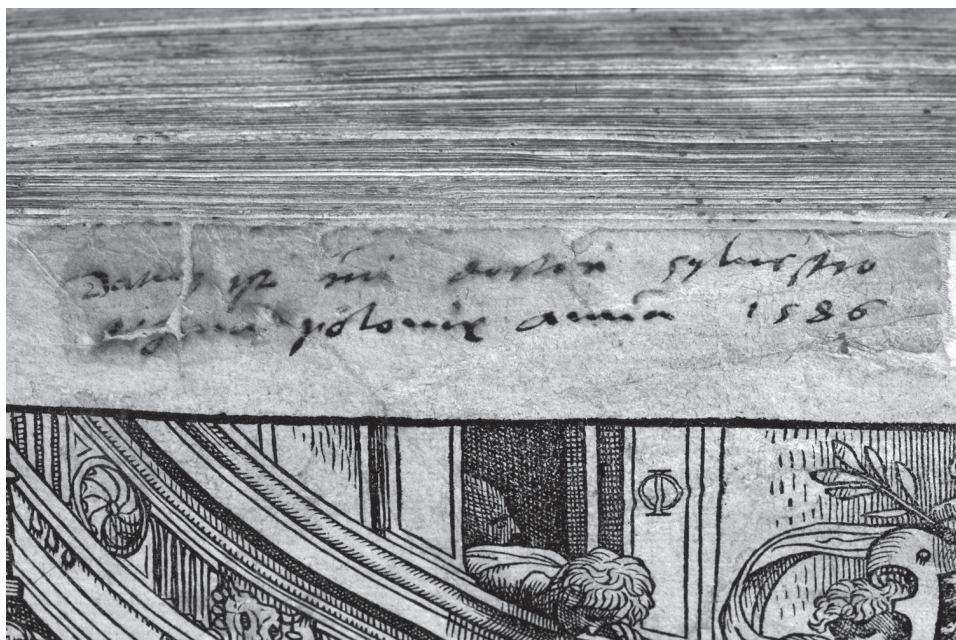 Datus est mi doctori sylvestro
regina polonie anna 1586
Φ